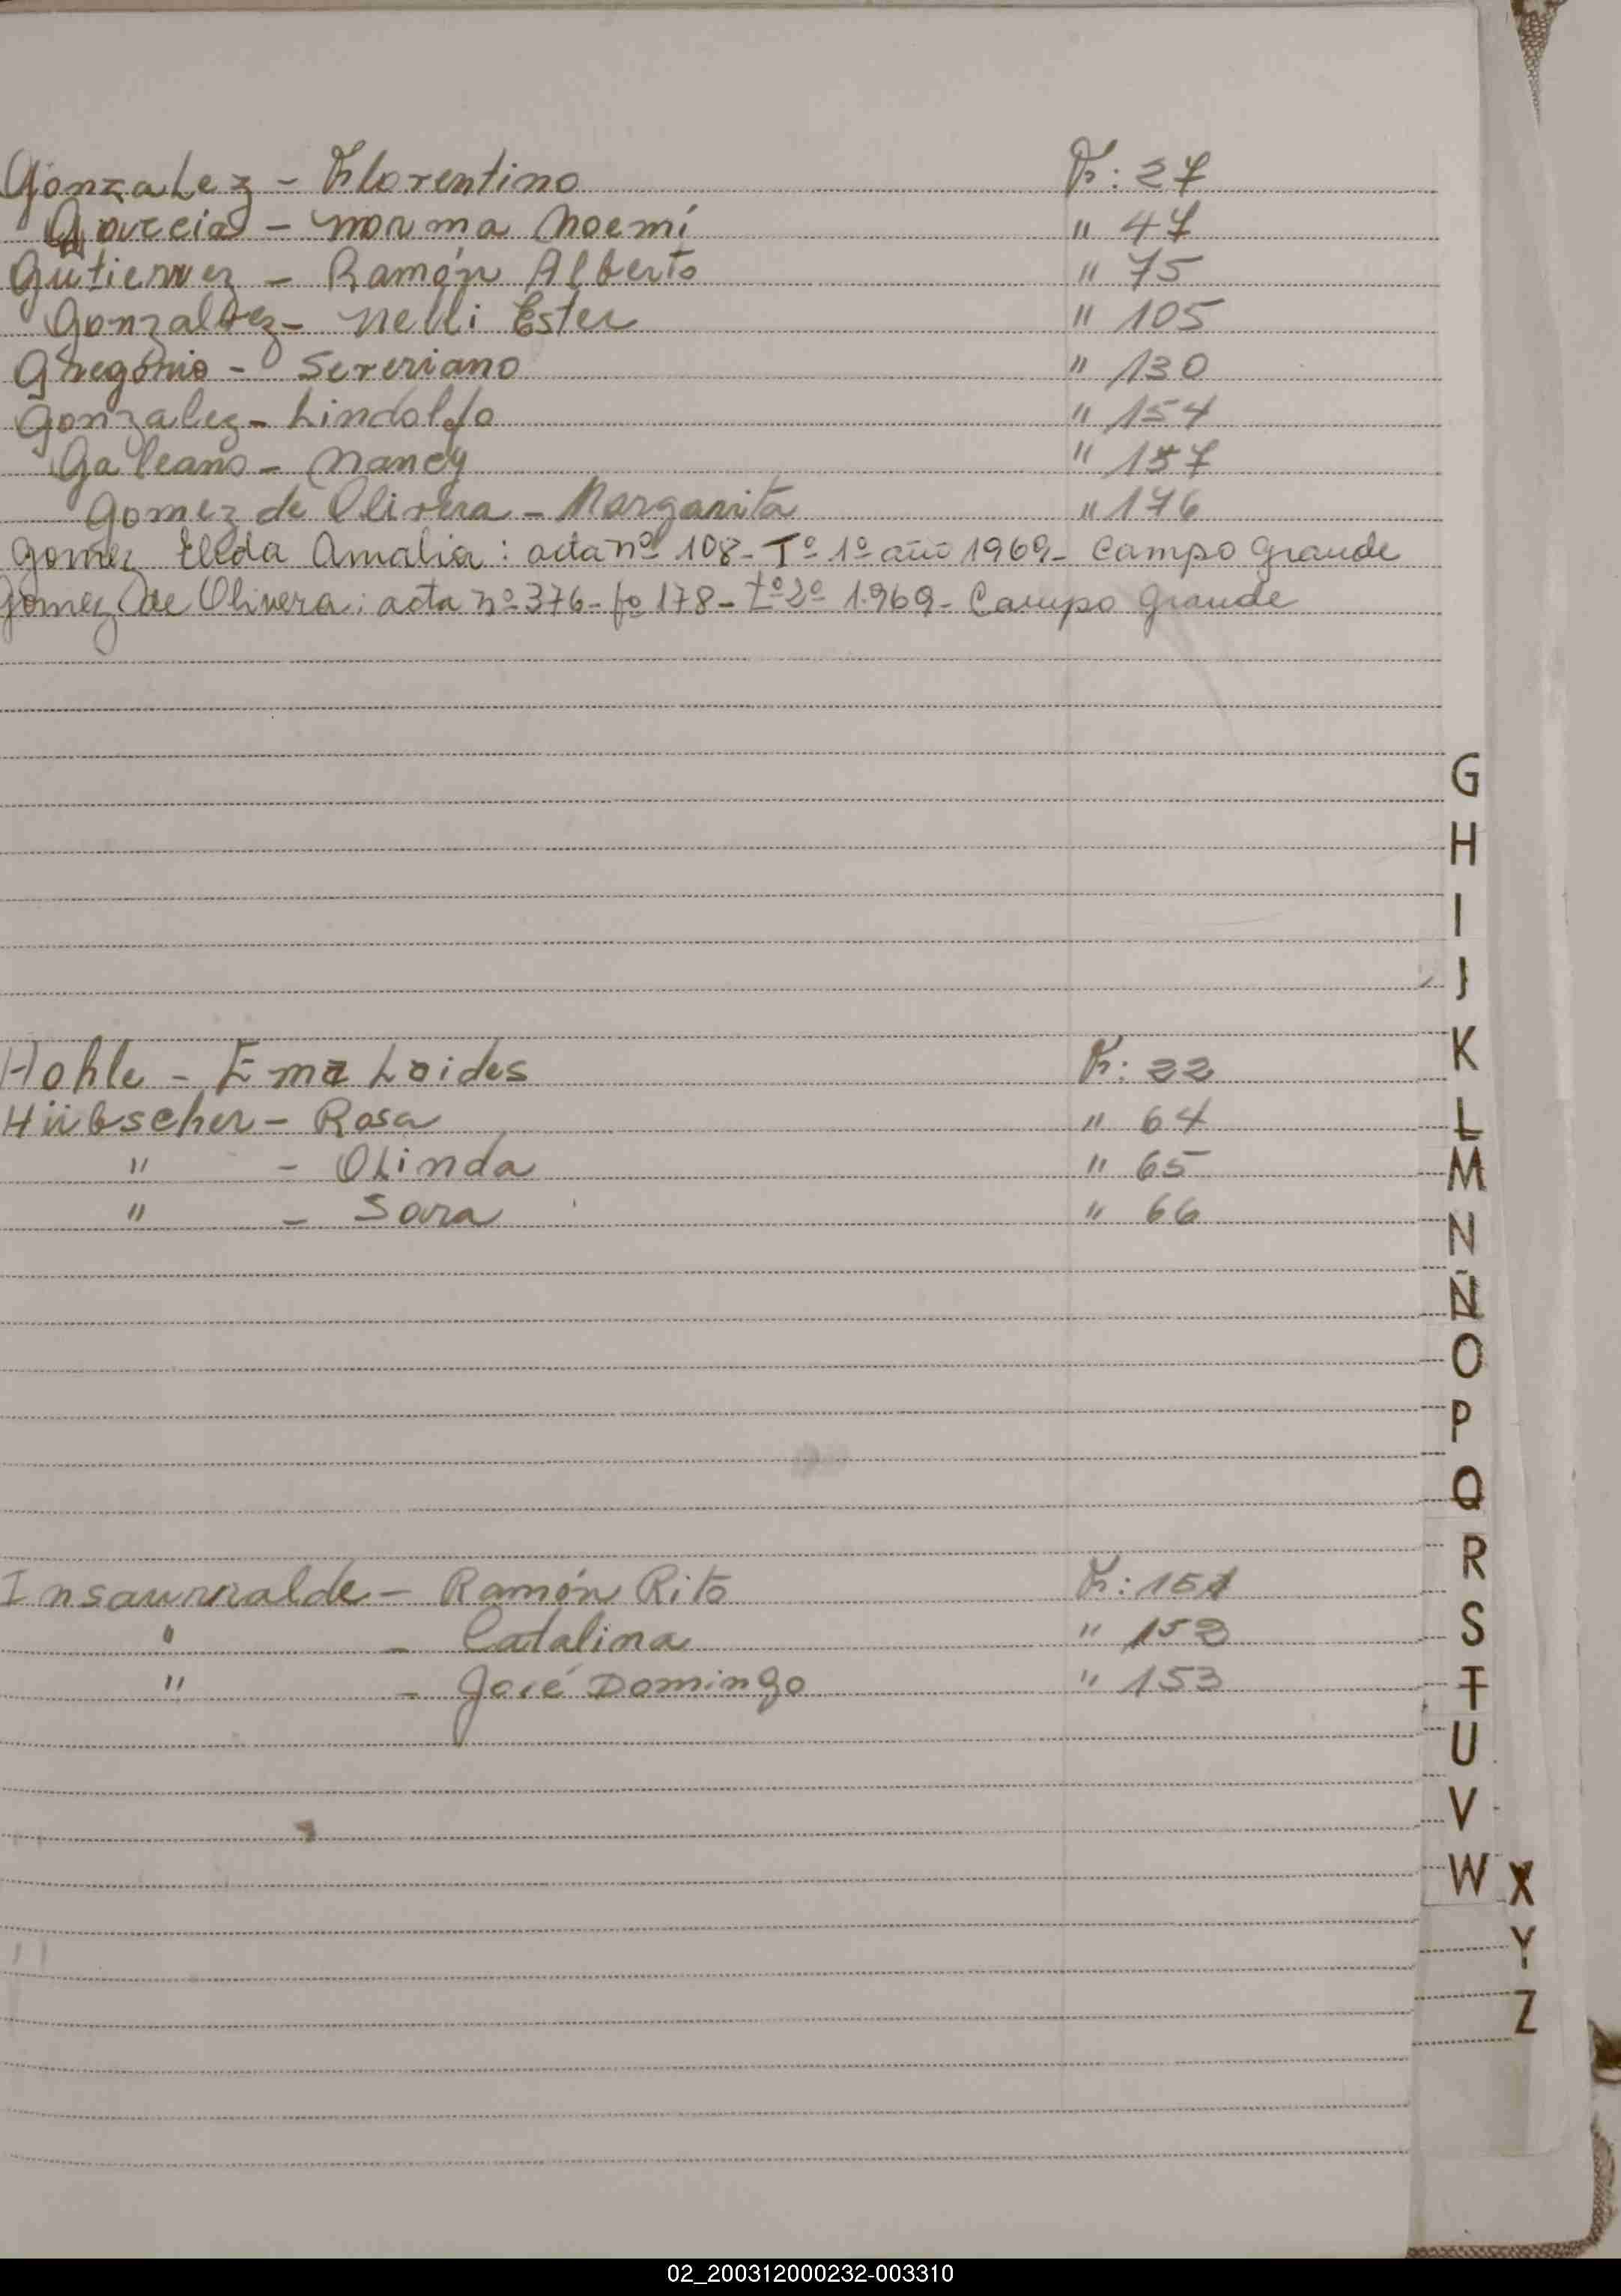 Gonzalez - Florentino F: 27
Garcia - Norma Noemí " 47
Gutierrez - Ramón Alberto " 75
Gonzalez - Nelli Ester " 105
Gregorio - Severiano " 130
Gonzalez - Lindolfo " 154
Galeano - Nancy " 157
Gomez de Olivera - Margarita " 176
Gomez Elida Amalia: acta nº 108 - Tº 1º año 1969 - Campo Grande
Gomez de Olivera: acta nº 376 - fº 178 - tº 2º 1.969 - Campo Grande
G
H
I
J
Hohle - Ema Loides F: 22
K
Hübscher - Rosa " 64
L
" - Olinda " 65
M
" - Sara " 66
N
Ñ
O
P
Q
R
Insaurralde - Ramón Rito F: 151
" - Catalina " 152
S
" - José Domingo " 153
T
U
V
W X
Y
Z
02_200312000232-003310